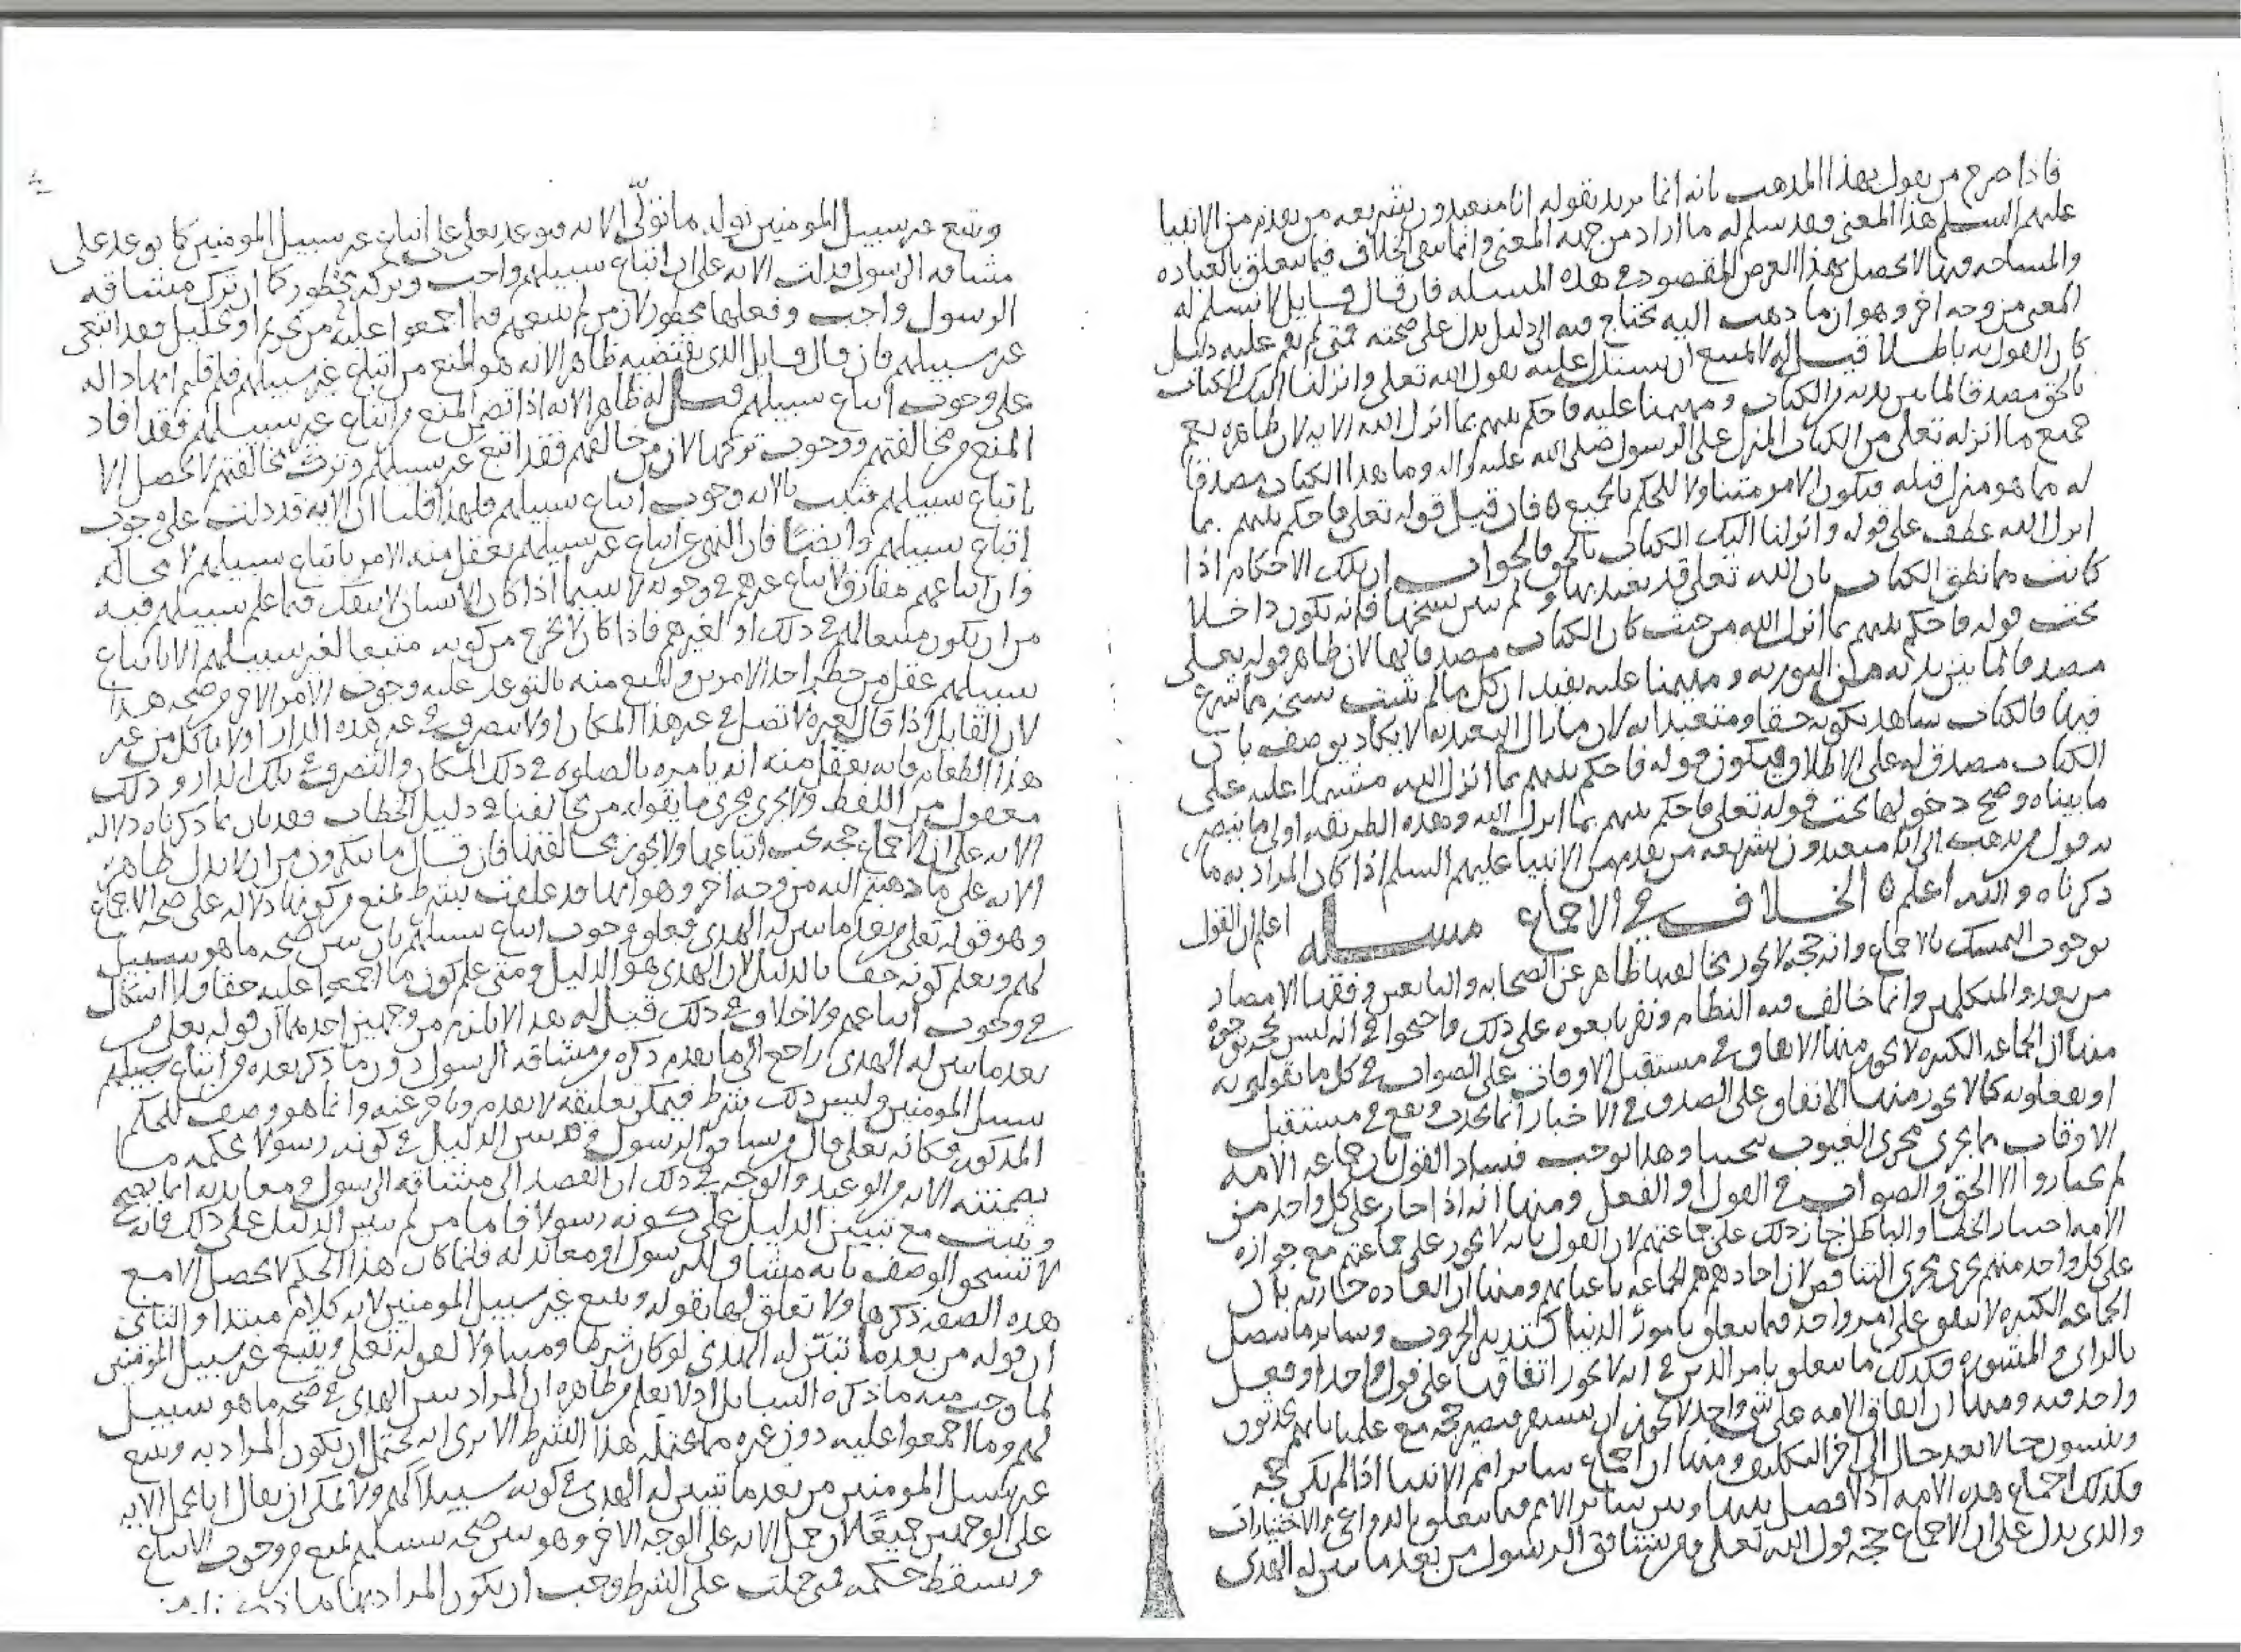 فاذا صرح من يقول بهذا المذهب بانه انما يريد بقوله انا متعبدون بشريعه من تقدم من الانبيا
عليهم السلم هذا المعنى فقد سلم له ما اراد من جهه المعنى وانما يبقى الخلاف فيما يتعلق بالعباده
والمسامحه فيها لا يحصل بهذا الغرض المقصود في هذه المسله فان قال قايل لا نسلم له
المعنى من وجه اخر وهو ان ما ذهب اليه يحتاج فيه الى دليل يدل على صحته فمتى لم يقم عليه دليل
كان القول به باطلا قيل له لا يمتنع ان يستدل عليه بقول الله تعلى وانزلنا اليك الكتاب
بالحق مصدقا لما بين يديه من الكتاب ومهيمنا عليه فاحكم بينهم بما انزل الله الايه لان ظاهره يعم
جميع ما انزله تعلى من الكتاب المنزل على الرسول صلى الله عليه واله وما بعدا الكتاب مصدقا
له مما هو منزل قبله فيكون الامر متناولا للحكم بالجميع ه فان قيل قوله تعلى فاحكم بينهم بما
انزل الله عطف على قوله وانزلنا اليك الكتاب بالحق فالجواب ان تلك الاحكام اذا
كانت مما نطق الكتاب بان الله تعلى قد تعبد بها ولم يبين نسخها فانه يكون داخلا
تحت قوله فاحكم بينهم بما انزل الله من حيث كان الكتاب مصدقا لها لان ظاهر قوله تعلى
مصدقا لما بين يديه من التوريه ومهيمنا عليه يفيد ان كل ما لم يثبت نسخه مما شرع
فيها فالكتاب شاهد بكونه حقا ومتعبدا به لان ما زال التعبد به لا يكاد يوصف بان
الكتاب مصدق له على الاطلاق فيكون قوله فاحكم بينهم بما انزل الله مشتملا عليه على
ما بيناه وصح دخولها تحت قوله تعلى فاحكم بينهم بما انزل الله وهذه الطريقه اولى ما ينصر
به قول من يذهب الى انا متعبدون بشريعه من تقدم من الانبيا عليهم السلم اذا كان المراد به ما
ذكرناه والله اعلم ه الخلاف في الاجماع مسله اعلم ان القول
بوجوب التمسك بالاجماع وانه حجه لا يجوز مخالفتها ظاهر عن الصحابه والتابعين وفقها الامصار
من بعد والمتكلمين وانما خالف فيه النظام ونفر تابعوه على ذلك واحتجوا في انه ليس بحجه بوجوه
منها ان الجماعه الكثيره لا يجوز منها الاتفاق في مستقبل الاوقات على الصواب في كل ما يقولونه
او يفعلونه كما لا يجوز منها الاتفاق على الصدق في الاخبار انما يحدث ويقع في مستقبل
الاوقات مما يجري مجرى الغيوب وهذا يوجب فساد القول بان جماعه الامه
لم يختاروا الا الحق والصواب في القول او الفعل ومنها انه اذا جاز على كل واحد من
الامه اختيار الخطا والباطل جاز ذلك على جماعتهم لان القول بانه لا يجوز على جماعتهم مع جوازه
على كل واحد منهم يجري مجرى التناقض لان احادهم هم الجماعه باعيانهم ومنها ان العاده جاريه بان
الجماعه الكثيره لا تتفق على امر واحد فيما يتعلق بامور الدنيا كتدبير الحروب وساير ما يتصل
بالراي والمشوره فكذلك ما يتعلق بامر الدين في انه لا يجوز اتفاقها على قول واحد او فعل
واحد فيه ومنها ان اتفاق الامه على شي واحد لا يجوز ان يستقر فيصير حجه مع علمنا بانهم يحدثون
وينسون حالا بعد حال الى اخر التكليف ومنها ان اجماع ساير امم الانبيا اذا لم يكن حجه
فكذلك اجماع هذه الامه اذ لا فصل بينها وبين ساير الامم فيما يتعلق بالدواعي والاختيارات
والذي يدل على ان الاجماع حجه قول الله تعلى ومن يشاقق الرسول من بعد ما تبين له الهدى
ويتبع غير سبيل المومنين نوله ما تولى الايه فتوعد تعلى على اتباع غير سبيل المومنين كما توعد على
مشاقه الرسول فدلت الايه على ان اتباع سبيلهم واجب وتركه محظور كما ان ترك مشاقه
الرسول واجب وفعلها محظور لان من لم يتبعهم فيما اجمعوا عليه من تحريم او تحليل فقد اتبع
غير سبيلهم فان قال قايل الذي يقتضيه ظاهر الايه هو المنع من اتباع غير سبيلهم فلم قلتم انها داله
على وجوب اتباع سبيلهم قيل له ظاهر الايه اذا تضمن المنع من اتباع غير سبيلهم فقد افاد
المنع من مخالفتهم ووجوب تركها لان من خالفهم فقد اتبع غير سبيلهم وترك مخالفتهم لا يحصل الا
باتباع سبيلهم فثبت بالايه وجوب اتباع سبيلهم فلهذا قلنا ان الايه قد دلت على وجوب
اتباع سبيلهم وايضا فان النهي عن اتباع غير سبيلهم يعقل منه الامر باتباع سبيلهم لا محاله
وان اتباعهم مفارق لاتباع غيرهم في وجوبه لا سيما اذا كان الانسان لا ينفك فيما علم سبيلهم فيه
من ان يكون متبعا لهم في ذلك او لغيرهم فاذا كان لا يخرج من كونه متبعا لغير سبيلهم الا باتباع
سبيلهم عقل من حظر احد الامرين والمنع منه بالتوعد عليه وجوب الامر الاخر وصحه هذا
لان القايل اذا قال لغيره لا تصل في غير هذا المكان او لا تتصرف في غير هذه الدار او لا تاكل من غير
هذا الطعام فانه يعقل منه انه يامره بالصلوه في ذلك المكان والتصرف في تلك الدار وذلك
معقول من اللفظ ولا يجري مجرى ما يقوله من يخالفنا في دليل الخطاب فقد بان بما ذكرناه دلاله
الايه على ان الاجماع حجه يجب اتباعها ولا يجوز مخالفتها فان قال ما تنكرون من ان لا يدل ظاهر
الايه على ما ذهبتم اليه من وجه اخر وهو انها قد علقت بشرط يمنع من كونها دلاله على صحه الاجماع
وهو قوله تعلى من بعد ما تبين له الهدى فعلق وجوب اتباع سبيلهم بان تبين صحه ما هو سبيل
لهم ويعلم كونه حقا بالدليل لان الهدى هو الدليل ومتى علم كون ما اجمعوا عليه حقا فلا اشكال
في وجوب اتباعهم ولا خلاف في ذلك قيل له هذا لا يلزم من وجهين احدهما ان قوله تعلى من
بعد ما تبين له الهدى راجع الى ما تقدم ذكره من مشاقه الرسول دون ما ذكر بعده من اتباع سبيلهم
سبيل المومنين وليس ذلك بشرط فيمكن تعليقه لا بعدم وتاخر عنه وانما هو وصف للحكم
المذكور فكانه تعلى قال ومن شاق الرسول وقد تبين الدليل في كونه رسولا بحكمه ما
تضمنته الايه من الوعيد والوجه في ذلك ان القصد الى مشاقه الرسول ومعاندته انما يصح
ويثبت مع تبيين الدليل على كونه رسولا فاما من لم يتبين الدليل على ذلك فانه
لا يستحق الوصف بانه مشاق للرسول او معاند له فلما كان هذا الحكم لا يحصل الا مع
هذه الصفه ذكرها ولا تعلق لها بقوله ويتبع غير سبيل المومنين لانه كلام مبتدا والثاني
ان قوله من بعد ما تبين له الهدى لو كان شرطا ومتناولا لقوله تعلى ويتبع غير سبيل المومنين
لما وجب منه ما ذكره السايل اذ لا يعلم من ظاهره ان المراد تبين الهدى في صحه ما هو سبيل
لهم وما اجمعوا عليه دون غيره مما يحتمله هذا الشرط الا ترى انه يحتمل ان يكون المراد به ويتبع
غير سبيل المومنين من بعد ما تبين له الهدى في كونه سبيلا لهم ولا يمكن ان يقال انا نحمل الايه
على الوجهين جميعا لان حمل الايه على الوجه الاخر وهو تبين صحه سبيلهم يمنع من وجوب الاتباع
ويسقط حكمه فمتى حملت على الشرط وجب ان يكون المراد بهما ما ذكرنا من